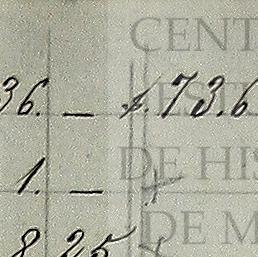 CENT
36. — $.73.6
ESTE
1. —
DE HIS
DE M
8 25